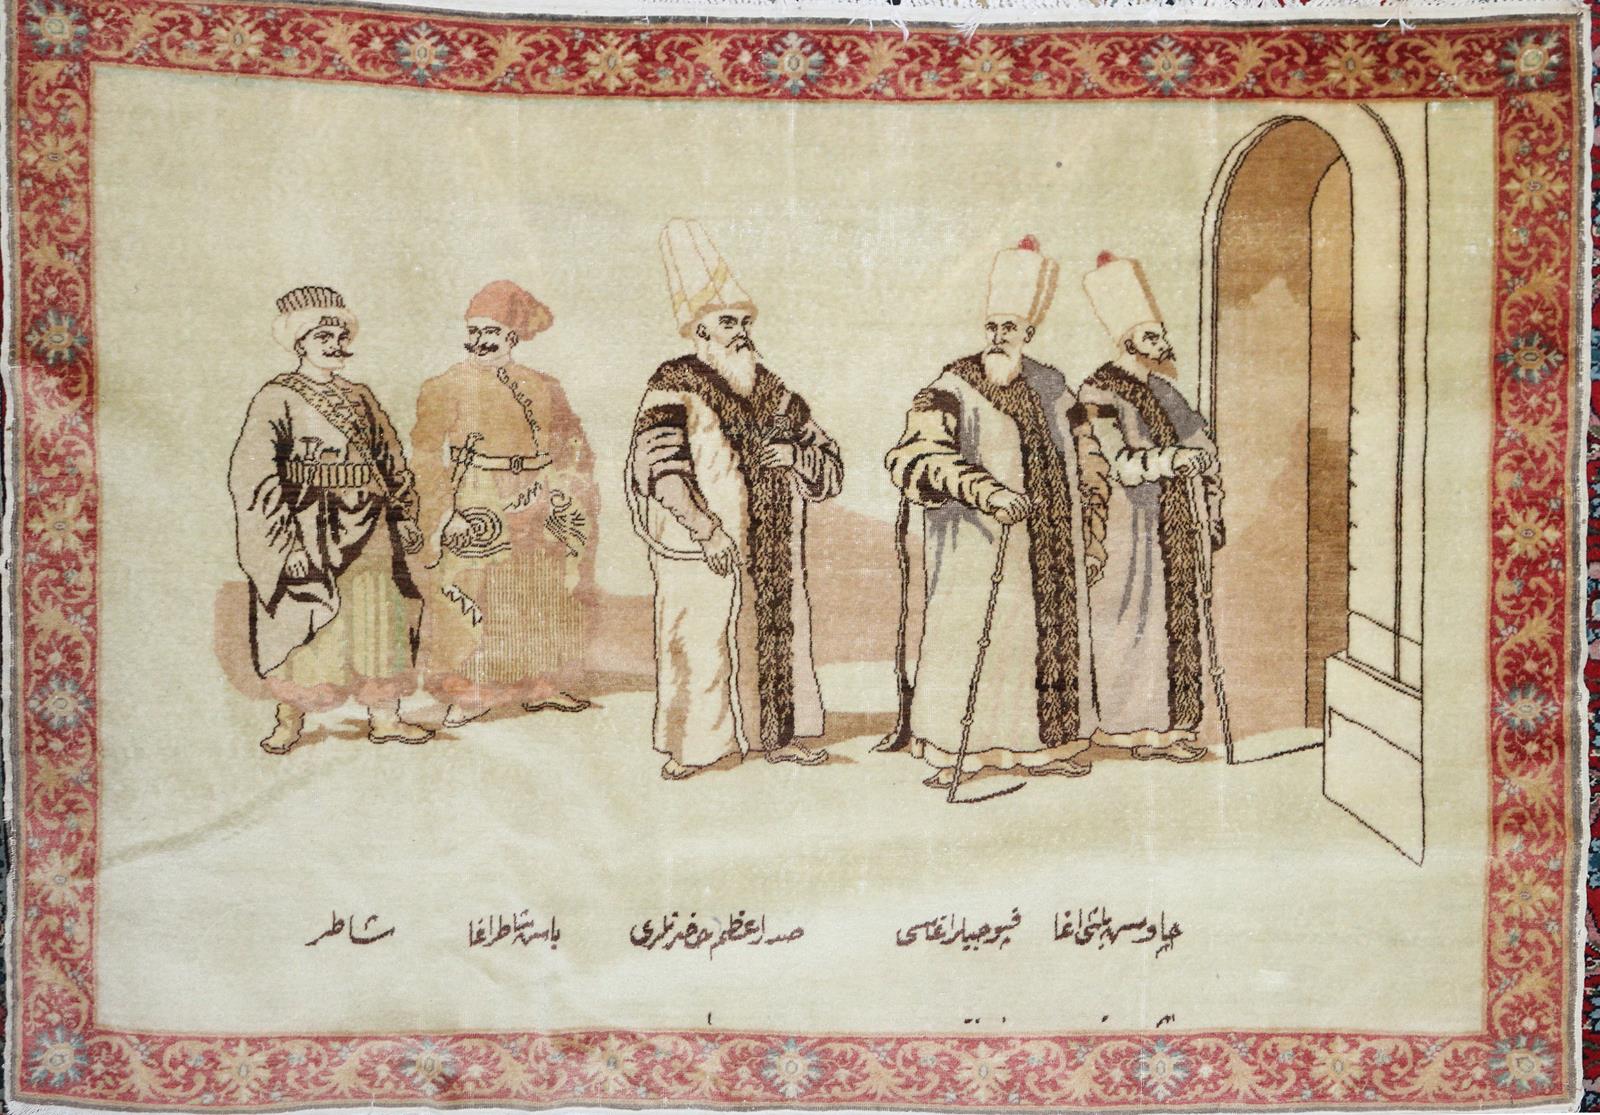 چاوش باشی اغا قپوجیلر اغاسی صدر اعظم حضرتلری باش شاطر اغا شاطر